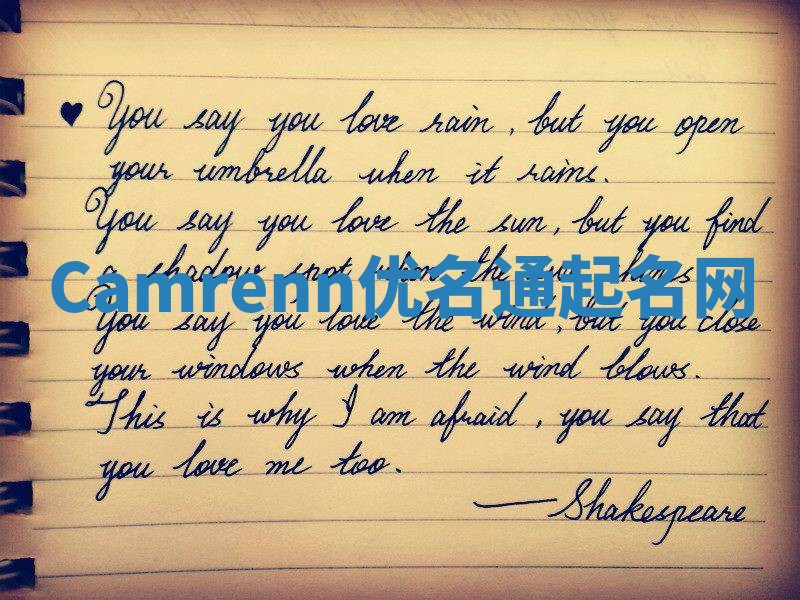 ♥ You say you love rain, but you open
your umbrella when it rains.
You say you love the sun, but you find
a shadow spot when the sun shines
Camrenn优名通起名网
You say you love the wind, but you close
your windows when the wind blows.
This is why I am afraid, you say that
you love me too.
—Shakespeare